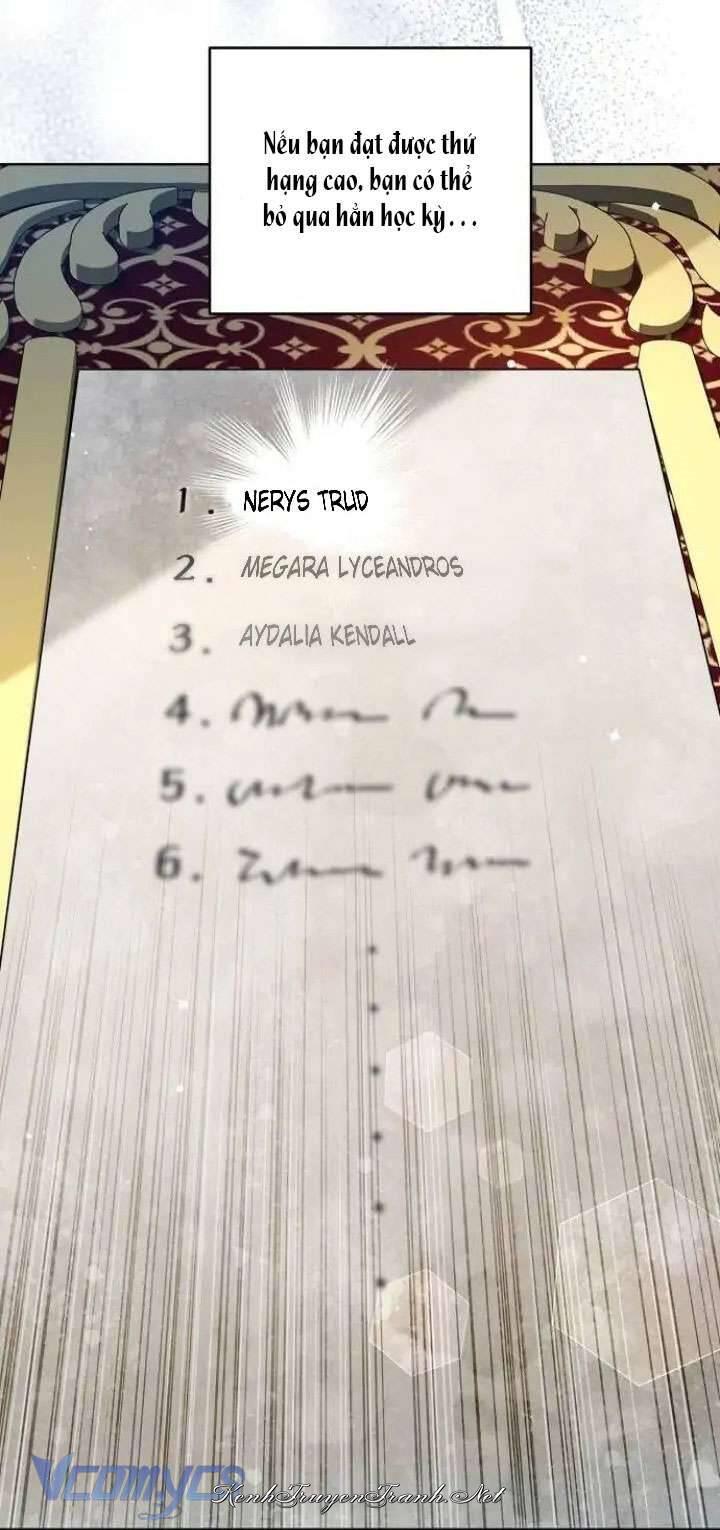 Nếu bạn đạt được thứ
hạng cao, bạn có thể
bỏ qua hẳn học kỳ...
1. NERYS TRUD
2. MEGARA LYCEANDROS
3. AYDALIA KENDALL
4.
5.
6.
Vcomycs
KenhTruyenTranh.Net